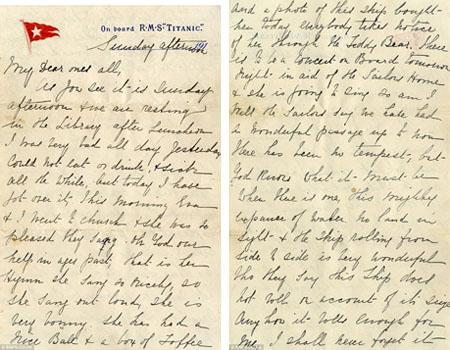 On board R.M.S "TITANIC."
Sunday afternoon
My Dear ones all,
As you see it is Sunday
afternoon & we are resting
in the Library after Luncheon
I was very bad all day yesterday
Could not eat or drink, & sick
all the while, but today I have
got over it, This morning Eva
& I went to church & she was so
pleased they sang Oh God our
help in ages past, that is her
Hymn she sang so nicely, so
she sang out loud, she is
very bonny she has had a
nice Ball & a box of Toffee
and a photo of this Ship bought
her today everybody takes notice
of her through the Teddy Bear. There
is to be a Concert on Board tomorrow
night in aid of the Sailors Home
& she is going to sing so am I
Well the Sailors say we have had
a wonderful passage up to now
there has been no tempest, but
God knows what it must be
When there is one, This mighty
expanse of water no land in
sight & the ship rolling from
side to side is very wonderful
tho they say this Ship does
not roll on account of its size
Any how it rolls enough for
me, I shall never forget it